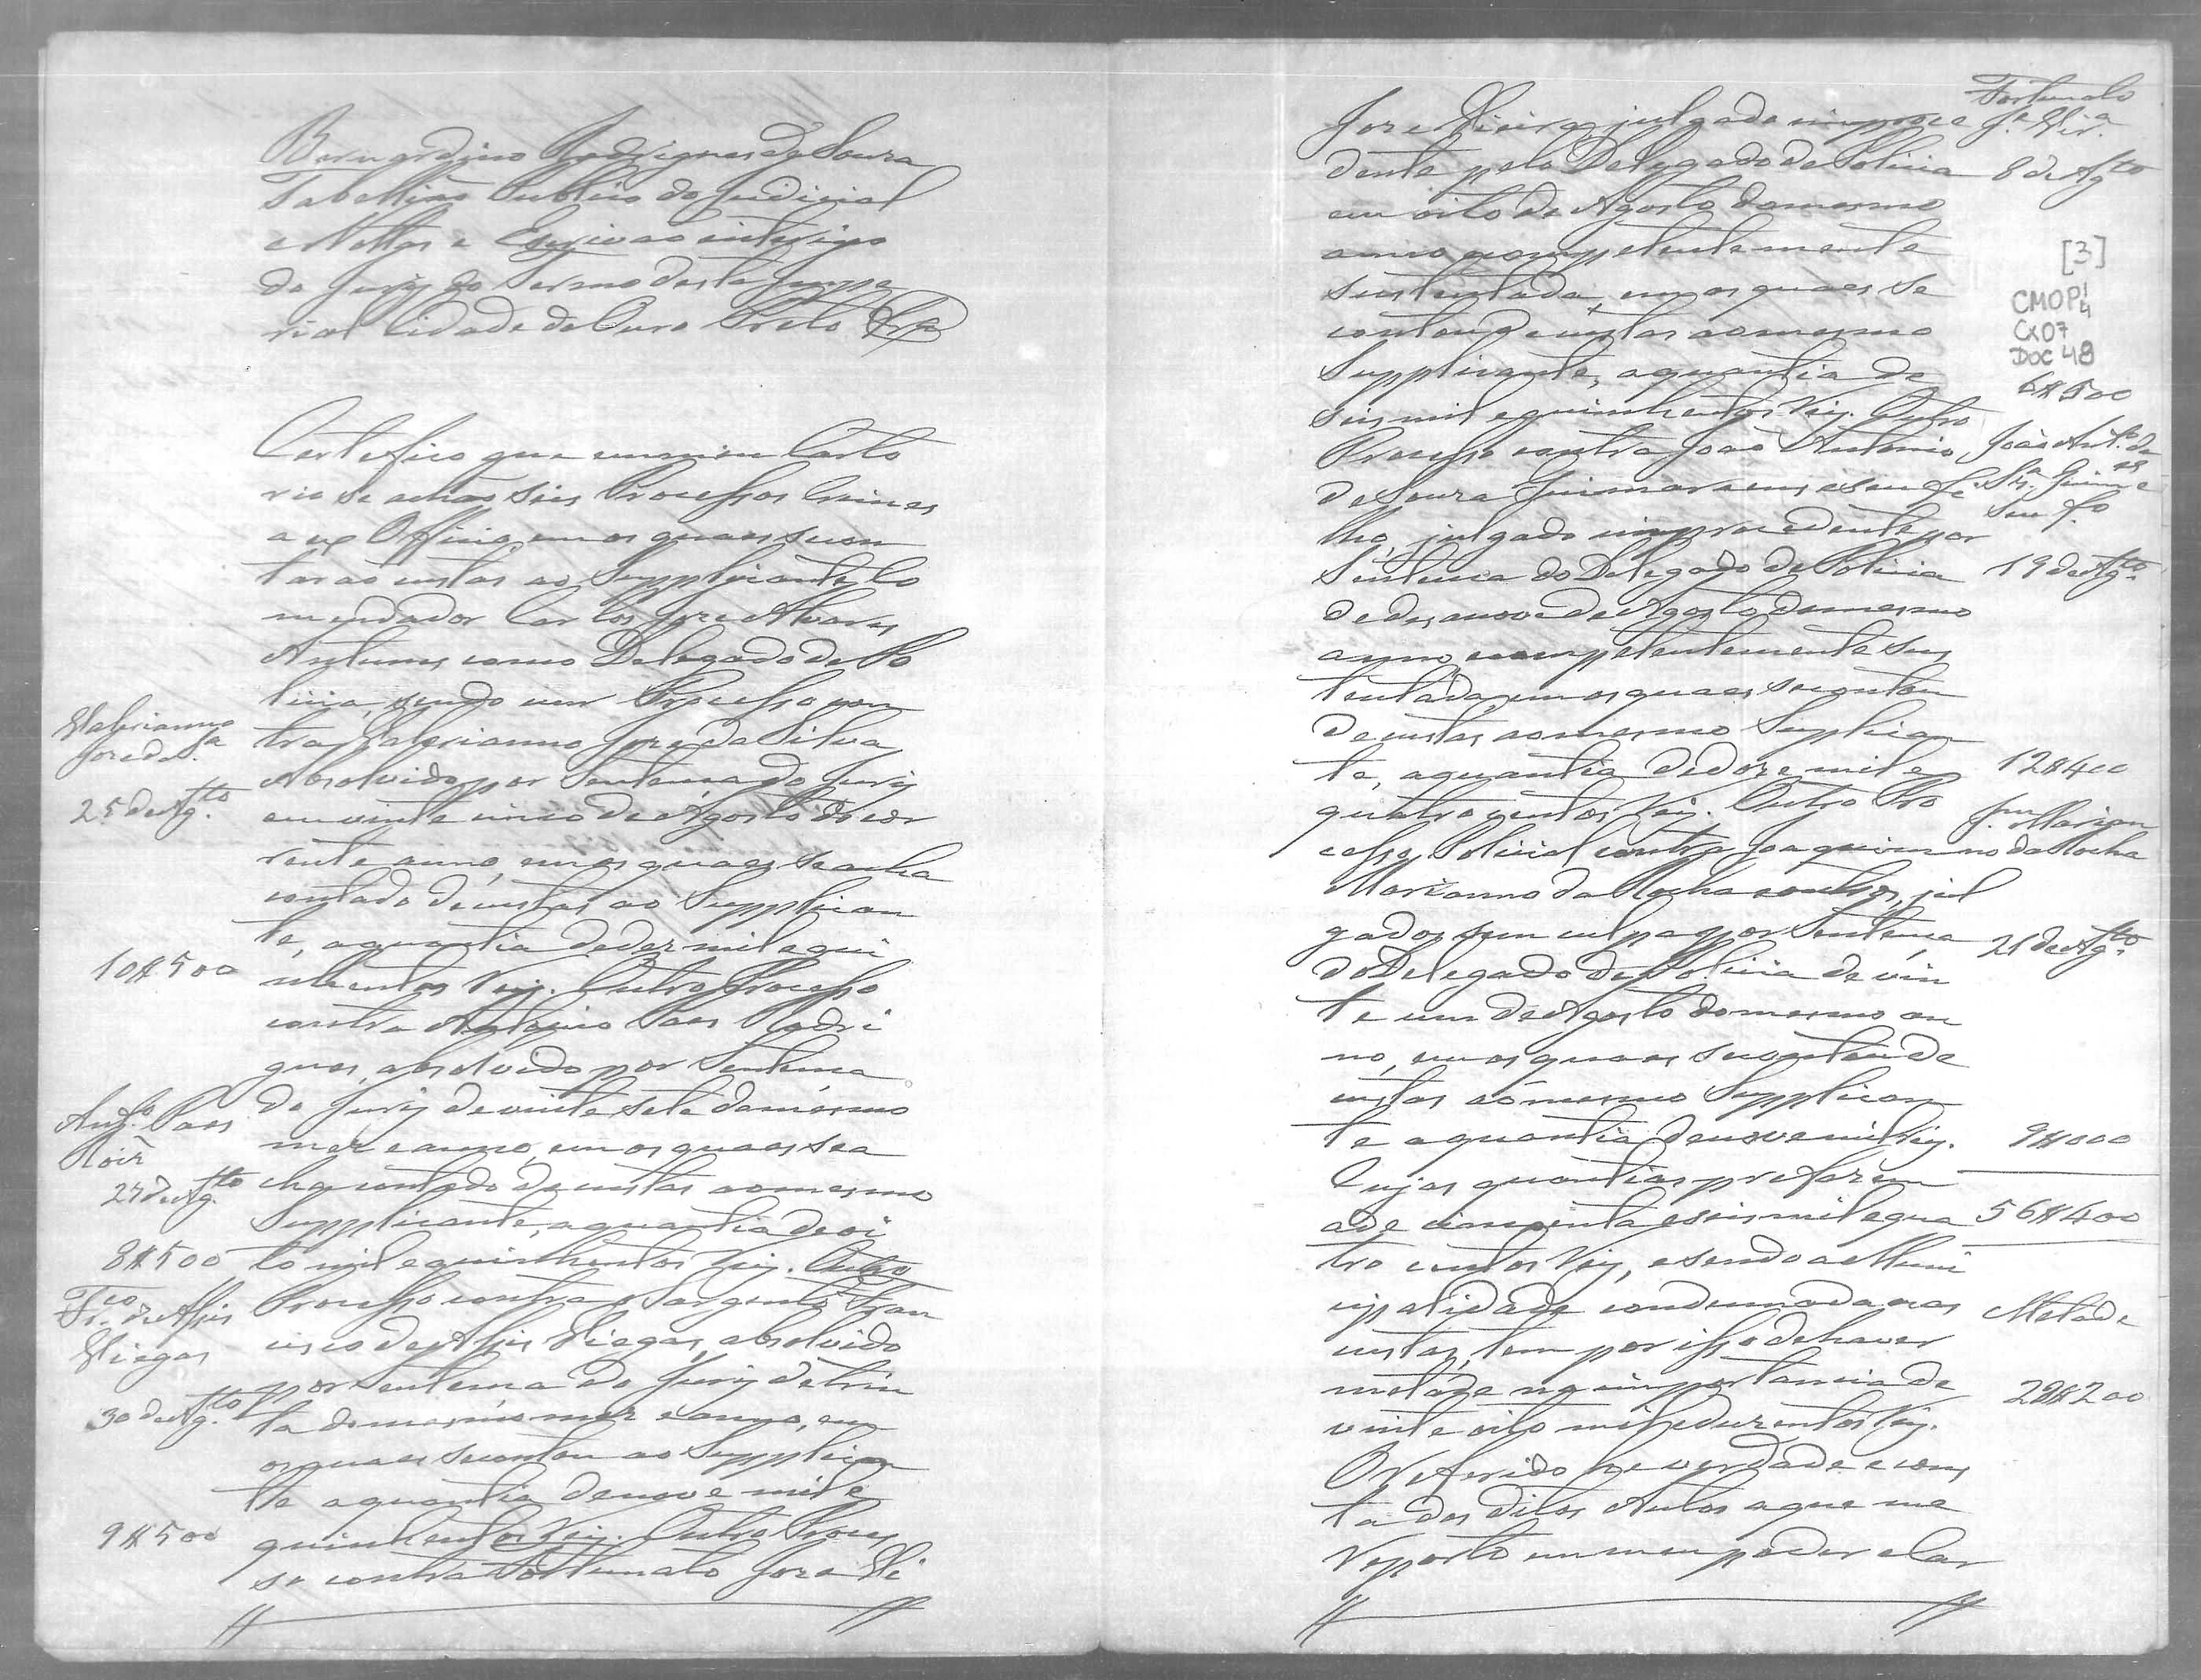 Bernardino Rodrigues de Souza
Tabellião Publico do Judicial
e Nottas e Escrivão interino
do Jury do Termo desta Impe
rial Cidade do Ouro Preto
Certefico que em meu Carto
rio se achão seis Processos Crimes
a ex Officio, em os quaes se con
tarão custas ao Supplicante Co
mendador Carlos Jose Alvares
Antunes como Delegado de Po
licia, sendo um Processo con
tra Valerianno Jose da Silva
Absolvido por Sentença do Jury
em vinte cinco de Agosto do cor
rente anno, em os quaes se acha
contado de custas ao Supplican
te, aquantia de dez mil e qui
nhentos Reis. Outro Processo
contra Antonio Paes Rodri
gues, absolvido por Sentença
do Jury de vinte sete do mesmo
mez e anno, em os quaes se a
cha contado de custas ao mesmo
Supplicante, aquantia de oi
to mil e quinhentos Reis. Outro
Processo contra o Sargento Fran
cisco de Assis Viegas, absolvido
por Sentença do Jury de trin
ta do mesmo mez e anno, em
os quaes se contou ao Supplican
te aquantia de nove mil e
quinhentos Reis. Outro Proces
so contra Fortunato Jose Vi
Valerianno
Jose da S.ª
25 de Ag.to
10$500
Ant.º Paes
Roiz
27 de Ag.to
8$500
Fr.co de Assis
Viegas
30 de Ag.to
9$500
Jose Vieira, julgado improce
dente pelo Delegado de Policia
em oito de Agosto do mesmo
anno competentemente
sustentada, em os quaes se
contou de custas ao mesmo
Supplicante, aquantia de
seis mil e quinhentos Reis. Outro
Processo contra João Antonio
de Souza Guimaraens, e seu fi
lho, julgado improcedente por
Sentença do Delegado de Policia
de desanove de Agosto do mesmo
anno, competentemente sus
tentada, em os quaes se contou
de custas ao mesmo Supplican
te, aquantia de doze mil e
quatro centos Reis. Outro Pro
cesso Policial contra Joaquim
Marianno da Rocha e outros, jul
gados sem culpa por Sentença
do Delegado de Policia de vin
te um de Agosto do mesmo an
no, em os quaes se contou de
custas ao mesmo Supplican
te aquantia de nove mil Reis.
Cujas quantias prefazem
a de cincoenta e seis mil e qua
tro centos Reis, e sendo a Muni
cipalidade condemnada nas
custas, tem por isso de haver
metade na importancia de
vinte oito mil e duzentos Reis.
O referido he verdade e cons
ta dos ditos Autos a que me
reporto em meu poder e Car
Fortunato
J.e Vir.ª
8 de Ag.to
[3]
CMOP 1/4
CX07
DOC 48
6$500
João Ant.º de
Sz.ª Guim.es e
seu f.º
19 de Ag.to
12$400
J.m Marian
no da Rocha
21 de Ag.to
9$000
56$400
Metade
28$200